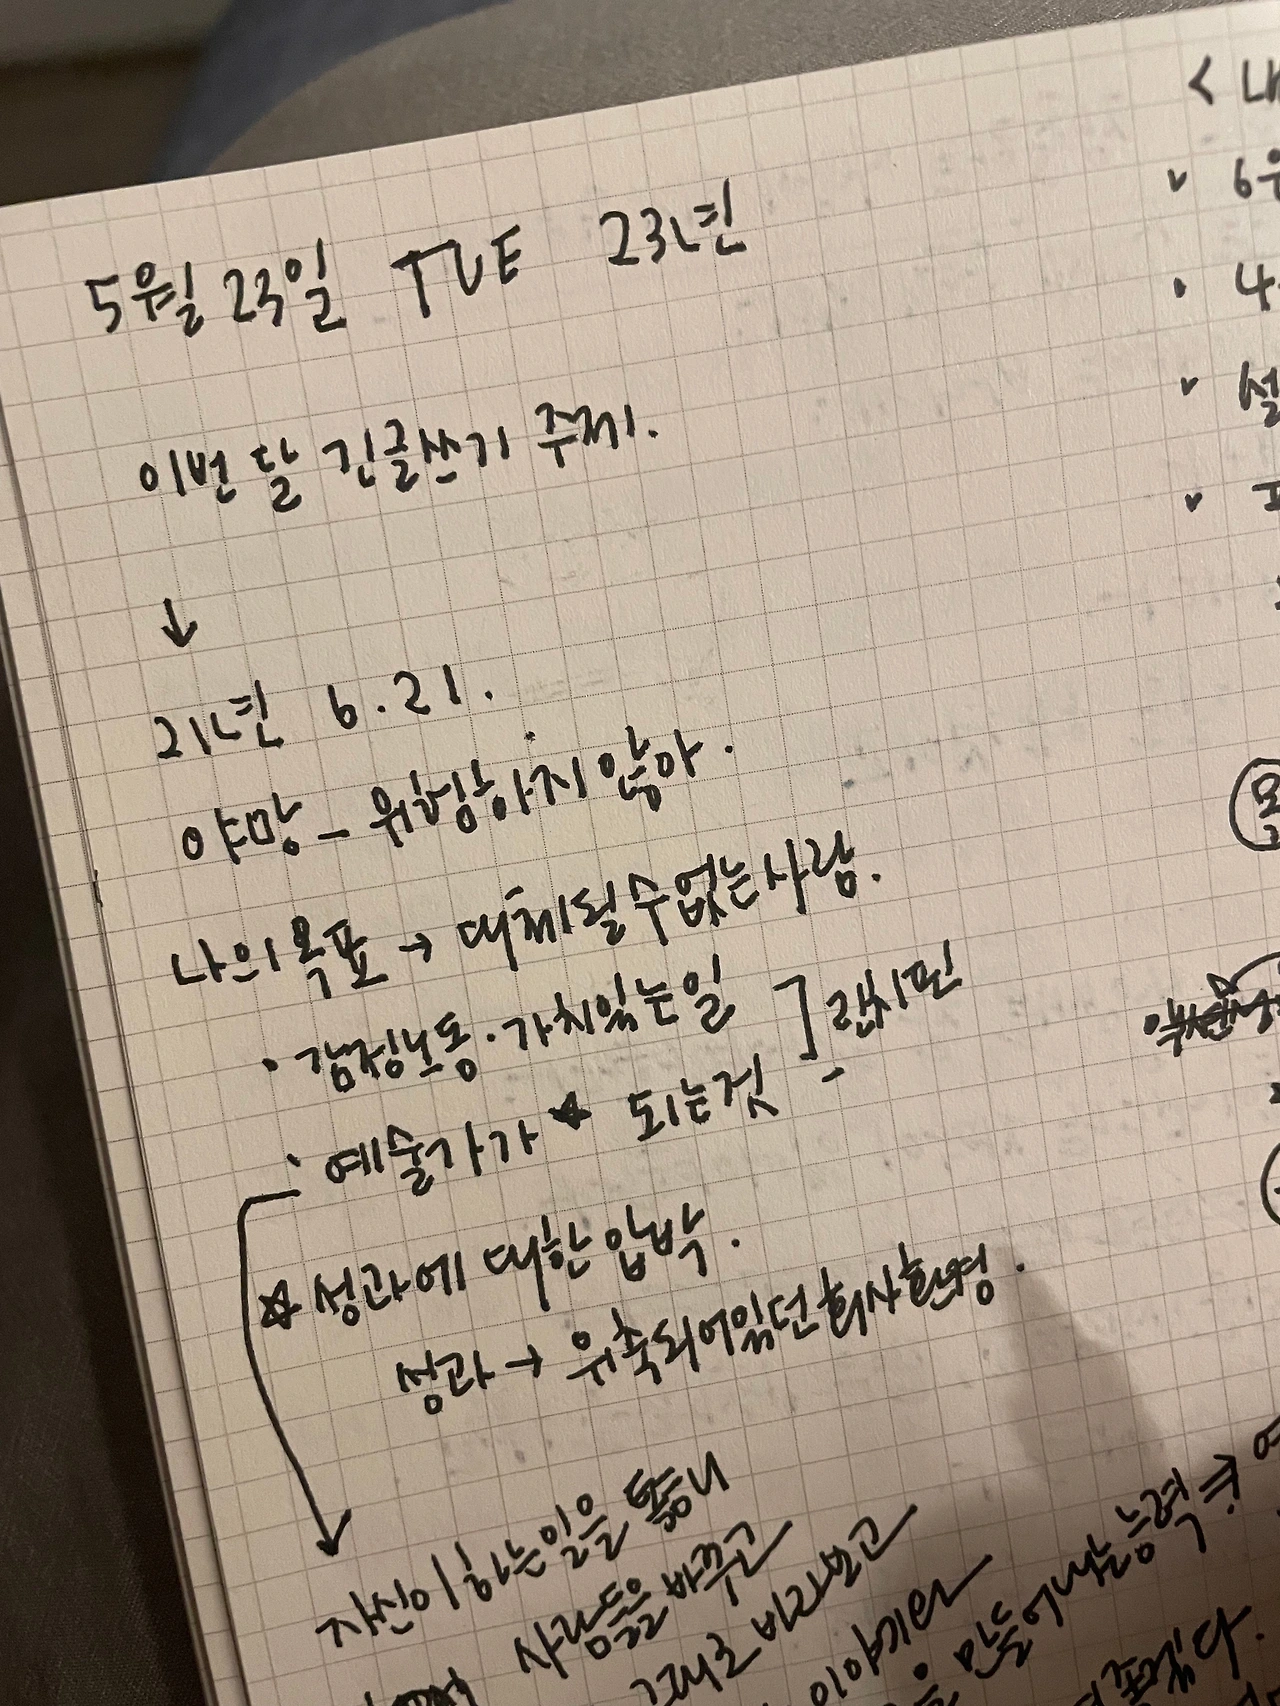 5월 23일 TUE 23년
이번 달 긴글쓰기 주제.
↓
21년 6.21.
야망 - 위험하지 않아.
나의 목표 → 대체될 수 없는 사람.
· 감정노동 · 가치있는 일
· 예술가가 ☆ 되는 것 ] 린치핀
☆ 성과에 대한 압박.
성과 → 위축되어있던 회사 환경.
자신이 하는 일을
사람들을 바꾸고
그대로 바라보고
이야기란
만들어내는 능력 ⇒
< 내
✓ 6
· 4
✓ 설